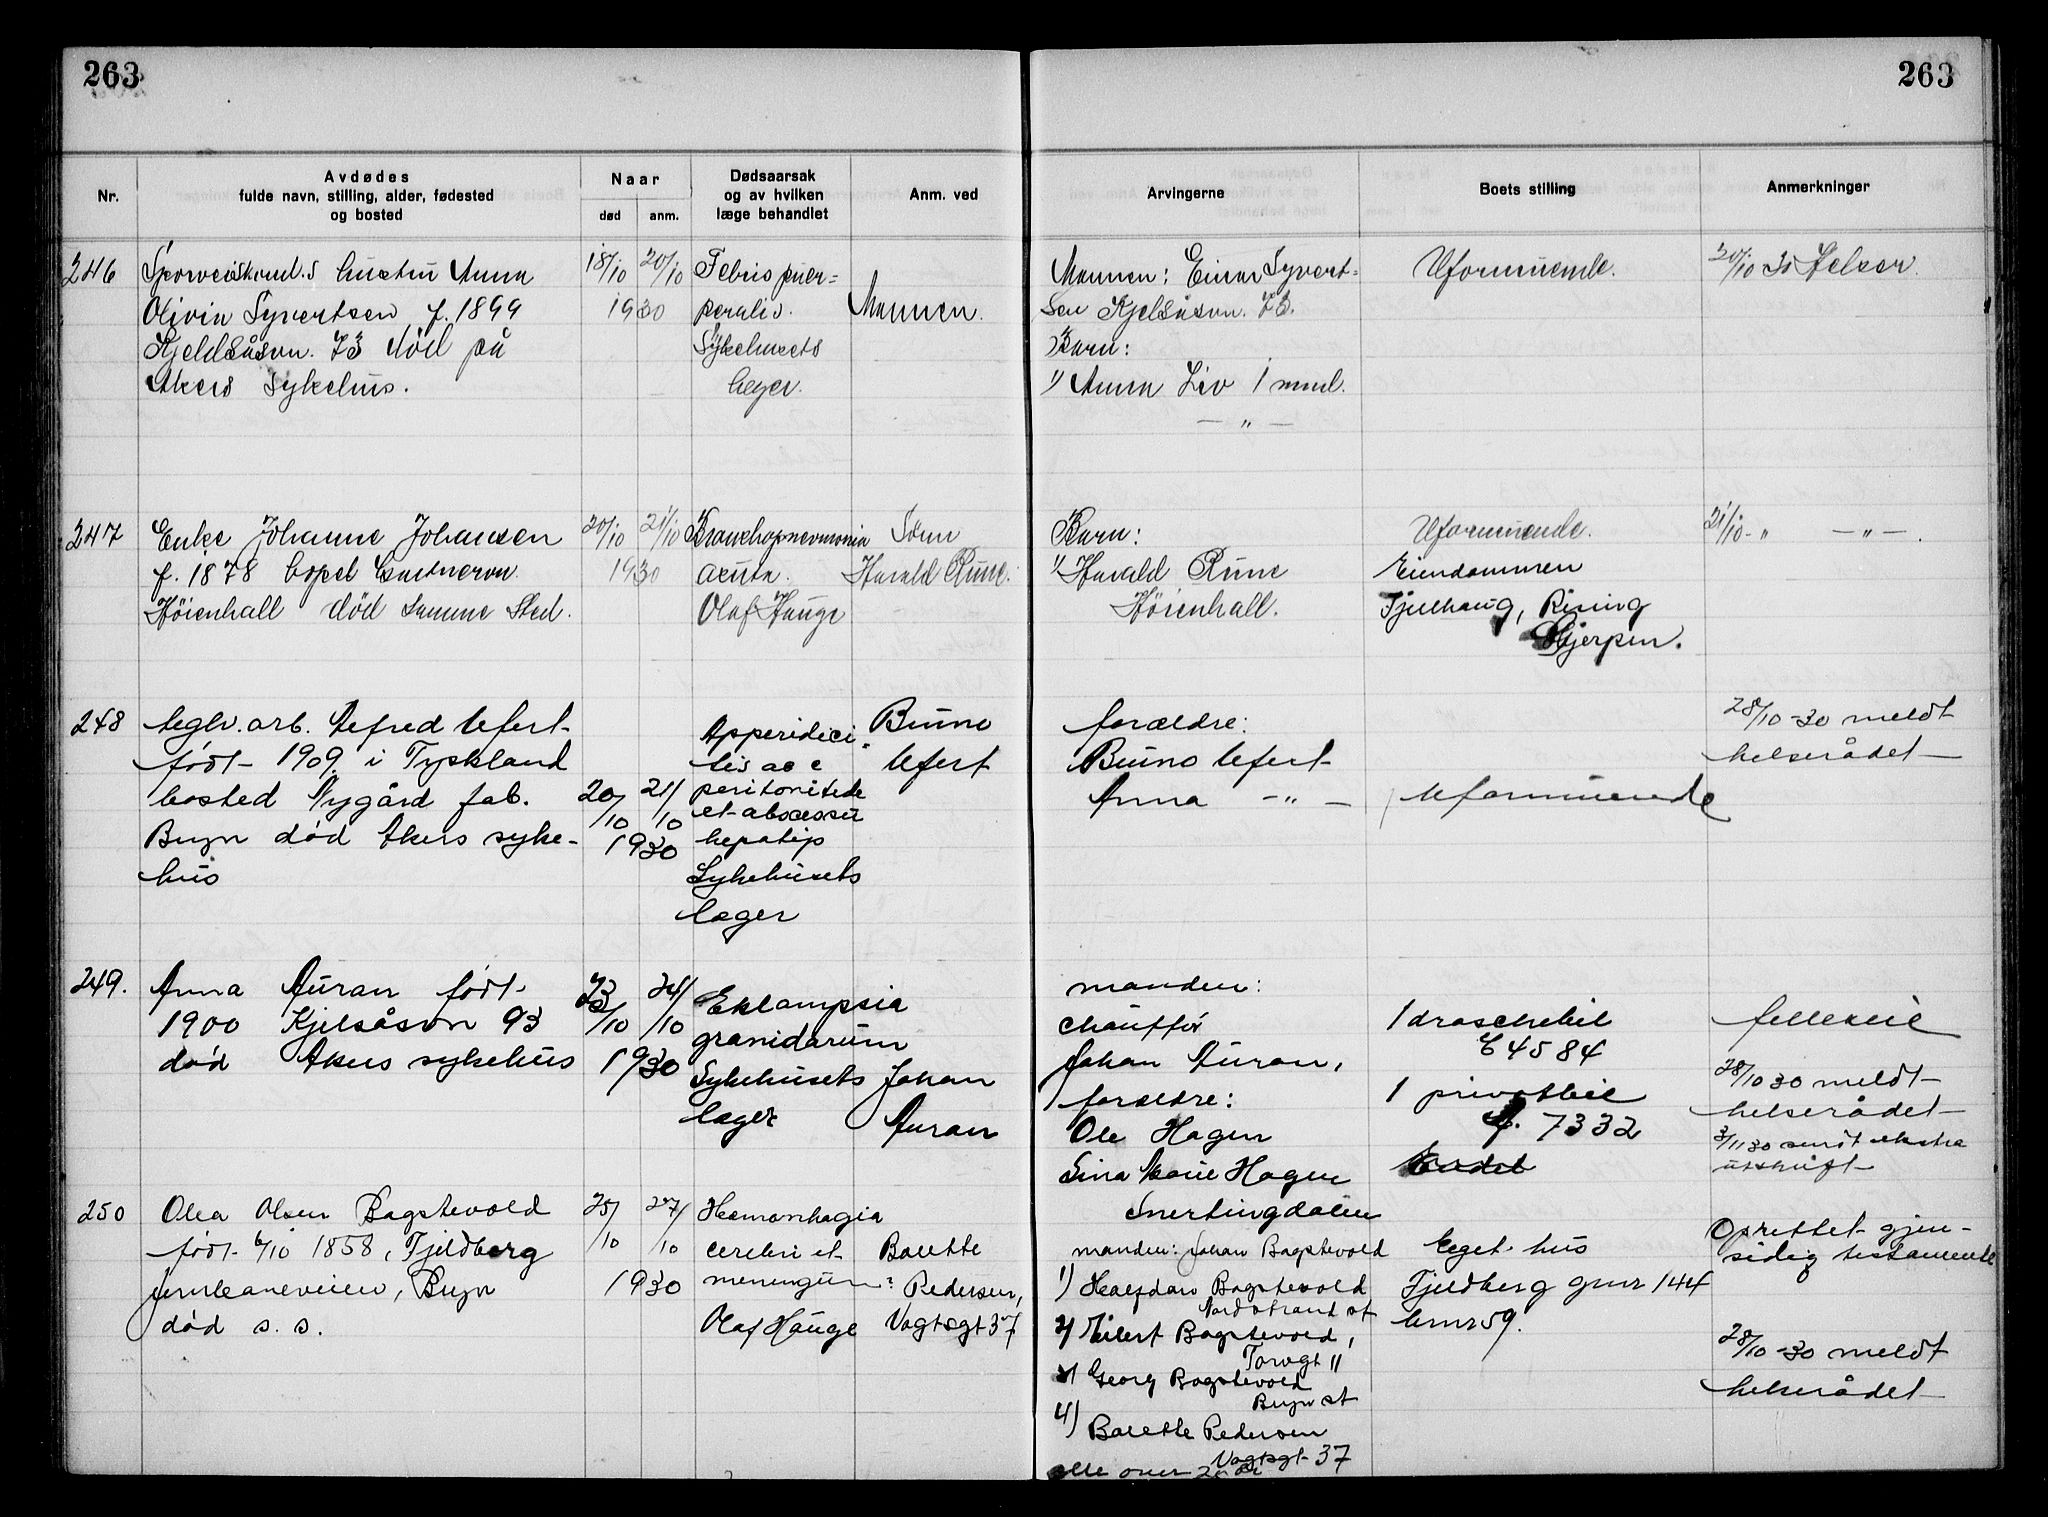 263
263
Nr.
Avdødes
fulde navn, stilling, alder, fødested
og bosted
Naar
død
anm.
Dødsaarsak
og av hvilken
læge behandlet
Anm. ved
Arvingerne
Boets stilling
Anmerkninger
246
Sporveiskond.s hustru Anna
Olivia Syvertsen f. 1899
Kjeldsåsvn. 73 död på
Akers Sykehus.
18/10 20/10
1930
Febris puer=
peralis.
Sykehusets
leger.
Mannen.
Mannen: Einar Syvert=
sen Kjelsåsvn. 73.
Barn:
1) Anna Liv 1 mnd.
— " —
Uformuende.
20/10 30 Helser.
247
Enke Johanne Johansen
f. 1878 bopel Gartnervn.
Höienhall död samme sted.
20/10 21/10
1930
Bronchopneumonia
acuta.
Olaf Hauge
Sønn
Harald Rune.
Barn:
1) Harald Rune
Höienhall.
Uformuende.
Eiendommen
Fjelhaug, Rising
Gjerpen.
21/10 - " — " — .
248
teglv. arb. Alfred Ufert
født 1909 i Tyskland
bosted Nygård fab.
Bryn død Akers syke-
hus
20/10 21/10
1930
Appendici-
tis ac c
peritonitide
et abscessu
hepatis
Sykehusets
læger
Bruno
Ufert
forældre:
Bruno Ufert
Anna — " —
Uformuende
28/10 -30 meldt
helserådet
249.
Anna Auran født
1900 Kjelsåsvn 93
død Akers sykehus
23/10 24/10
1930
Eklampsia
gravidarum
Sykehusets
læger
Johan
Auran
manden:
chauffør
Johan Auran,
forældre:
Ole Hagen
Lina Marie Hagen
Snertingdalen
1 droschebil
C 4584
1 privatbil
A. 7332
felleseie
28/10 30 meldt
helserådet
3/11 30 sendt ekstra
utskrift
250
Olea Olsen Bagstevold
født 6/10 1858, Fjeldberg
Jernbaneveien, Bryn
død s. s.
25/10 27/10
1930
Hæmorrhagia
cerebri et
meningum?
Olaf Hauge
Borette
Pedersen,
Vogtsgt 37
manden: Johan Bagstevold
1) Halfdan Bagstevold
Nordstrand st
2) Eilert Bagstevold,
Torvgt 11
3) Georg Bagstevold
Bryn st
4) Borette Pedersen
Vogtsgt 37
alle over 20 år
Eget hus
Fjeldberg gnr 144
bnr 59.
Oprettet gjen-
sidig testamente
28/10 -30 meldt
helserådet